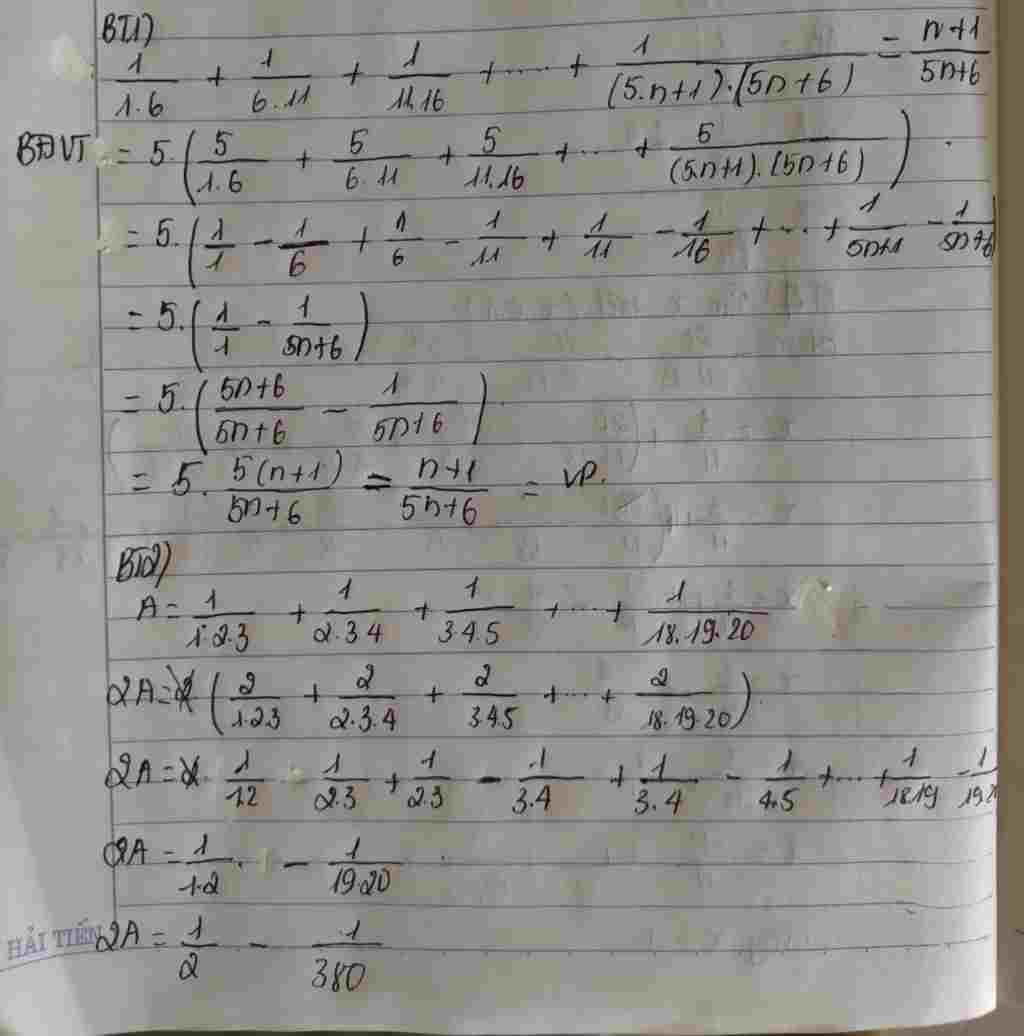 BT1)
1/1.6 + 1/6.11 + 1/11.16 + .... + 1/(5.n+1).(5n+6) = n+1/5n+6
BĐVT = 5.(5/1.6 + 5/6.11 + 5/11.16 + ... + 5/(5.n+1).(5n+6))
= 5.(1/1 - 1/6 + 1/6 - 1/11 + 1/11 - 1/16 + ... + 1/5n+1 - 1/5n+6)
= 5.(1/1 - 1/5n+6)
= 5.(5n+6/5n+6 - 1/5n+6)
= 5. 5(n+1)/5n+6 = n+1/5n+6 = VP.
BT2)
A = 1/1.2.3 + 1/2.3.4 + 1/3.4.5 + ... + 1/18.19.20
2A = (2/1.2.3 + 2/2.3.4 + 2/3.4.5 + ... + 2/18.19.20)
2A = 1/1.2 - 1/2.3 + 1/2.3 - 1/3.4 + 1/3.4 - 1/4.5 + ... + 1/18.19 - 1/19.20
2A = 1/1.2 - 1/19.20
2A = 1/2 - 1/380
HẢI TIẾN